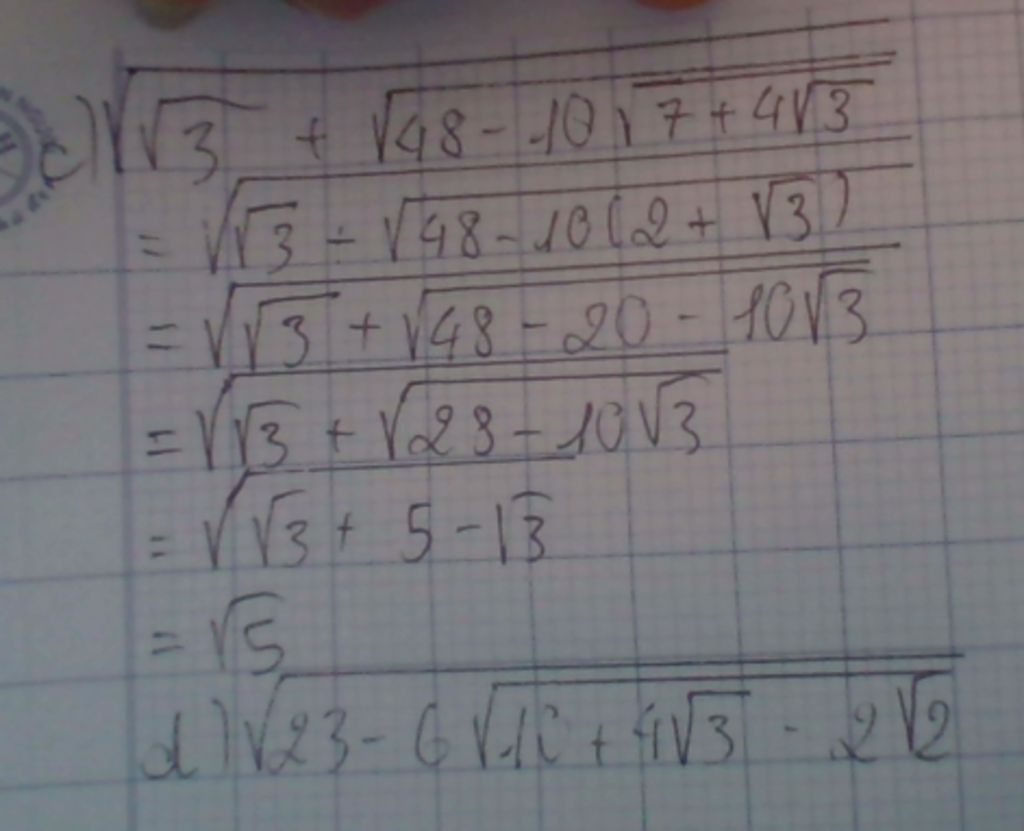 c) √(√3 + √(48 - 10√(7 + 4√3)))
= √(√3 + √(48 - 10(2 + √3)))
= √(√3 + √(48 - 20 - 10√3))
= √(√3 + √(28 - 10√3))
= √(√3 + 5 - √3)
= √5
d) √(23 - 6√(10 + 4√3 - 2√2))